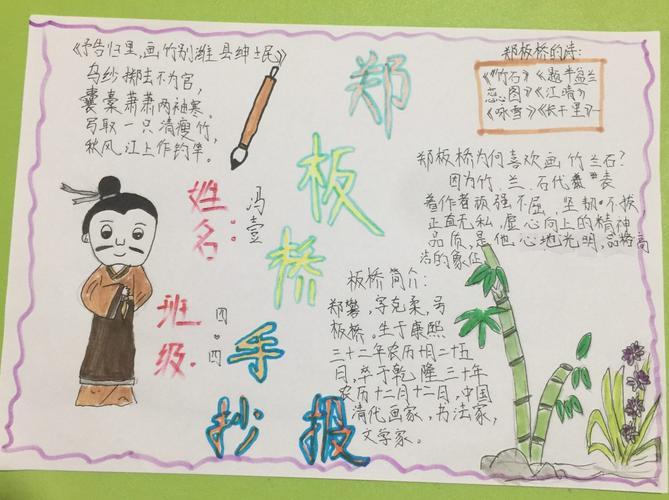 《予告归里,画竹别潍县绅士民》
乌纱掷去不为官,
囊橐萧萧两袖寒。
写取一只清瘦竹,
秋风江上作钓竿。
郑板桥
手抄报
姓名:
冯壹
班级:
四·四
郑板桥的诗:
《竹石》《题半盆兰
蕊图》《江晴》
《咏雪》《长干里》…
郑板桥为何喜欢画竹兰石?
因为竹、兰、石代表
着作者顽强不屈、坚韧不拔
正直无私,虚心向上的精神
品质,是他心地光明,品格高
洁的象征
板桥简介:
郑燮,字克柔,号
板桥。生于康熙
三十二年农历十月二十五
日,卒于乾隆三十年
农历十二月十二日,中国
清代画家,书法家,
文学家。